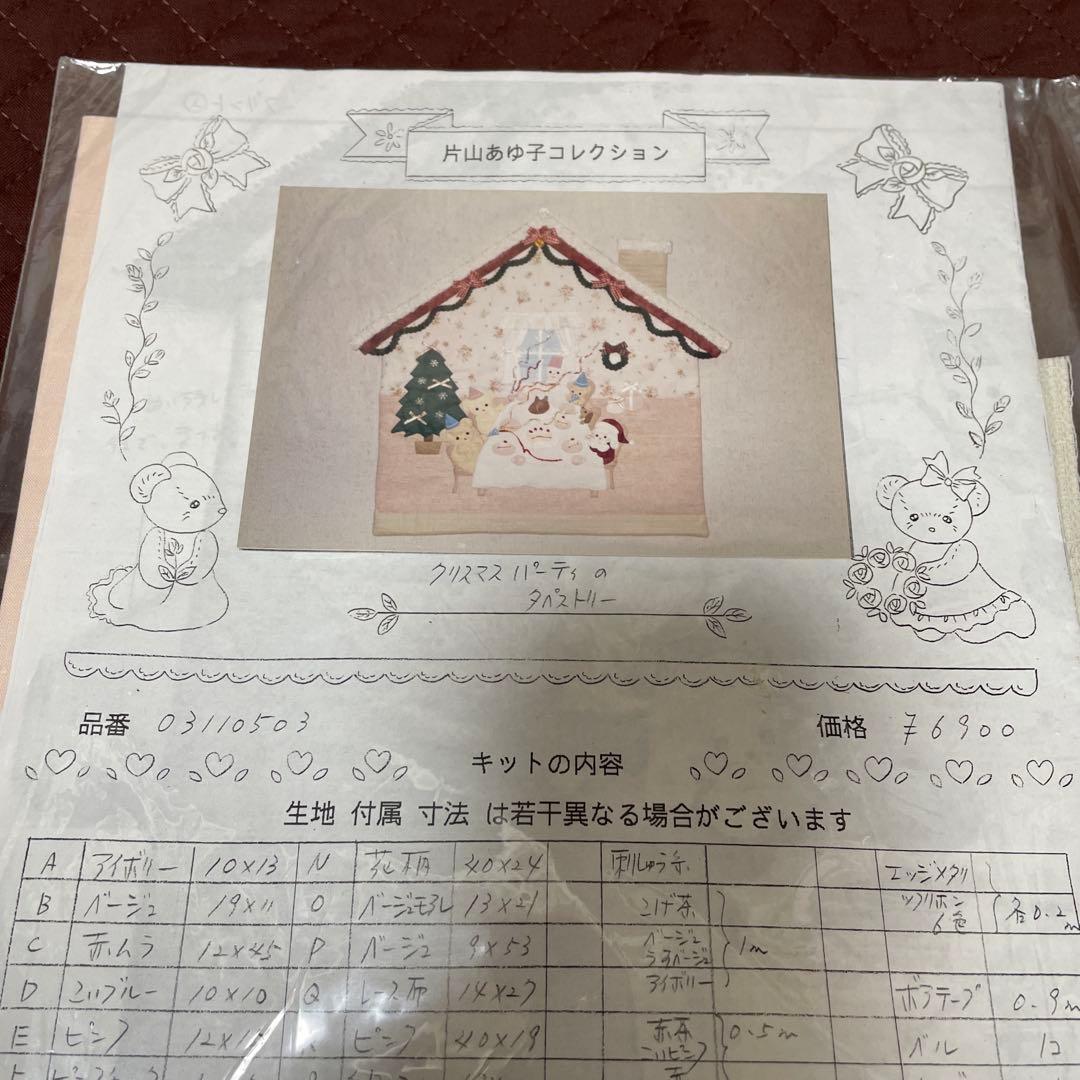 片山あゆ子コレクション
クリスマス パーティ の
タペストリー
品番 03110503 価格 ¥6900
キットの内容
生地 付属 寸法 は若干異なる場合がございます
A アイボリー 10×13 N 花柄 40×24 刺しゅう糸 エッジメタリ
B ベージュ 19×11 O 13×21 こげ茶 ックリボン 6色 各0.2m
C 赤ムラ 12×45 P ベージュ 9×53 ベージュ うすベージュ 1m
D こいブルー 10×10 Q レース布 14×27 アイボリー ボアテープ 0.9m
E ピンク ピンク 40×19 赤茶 こいピンク 0.5m ベル 12